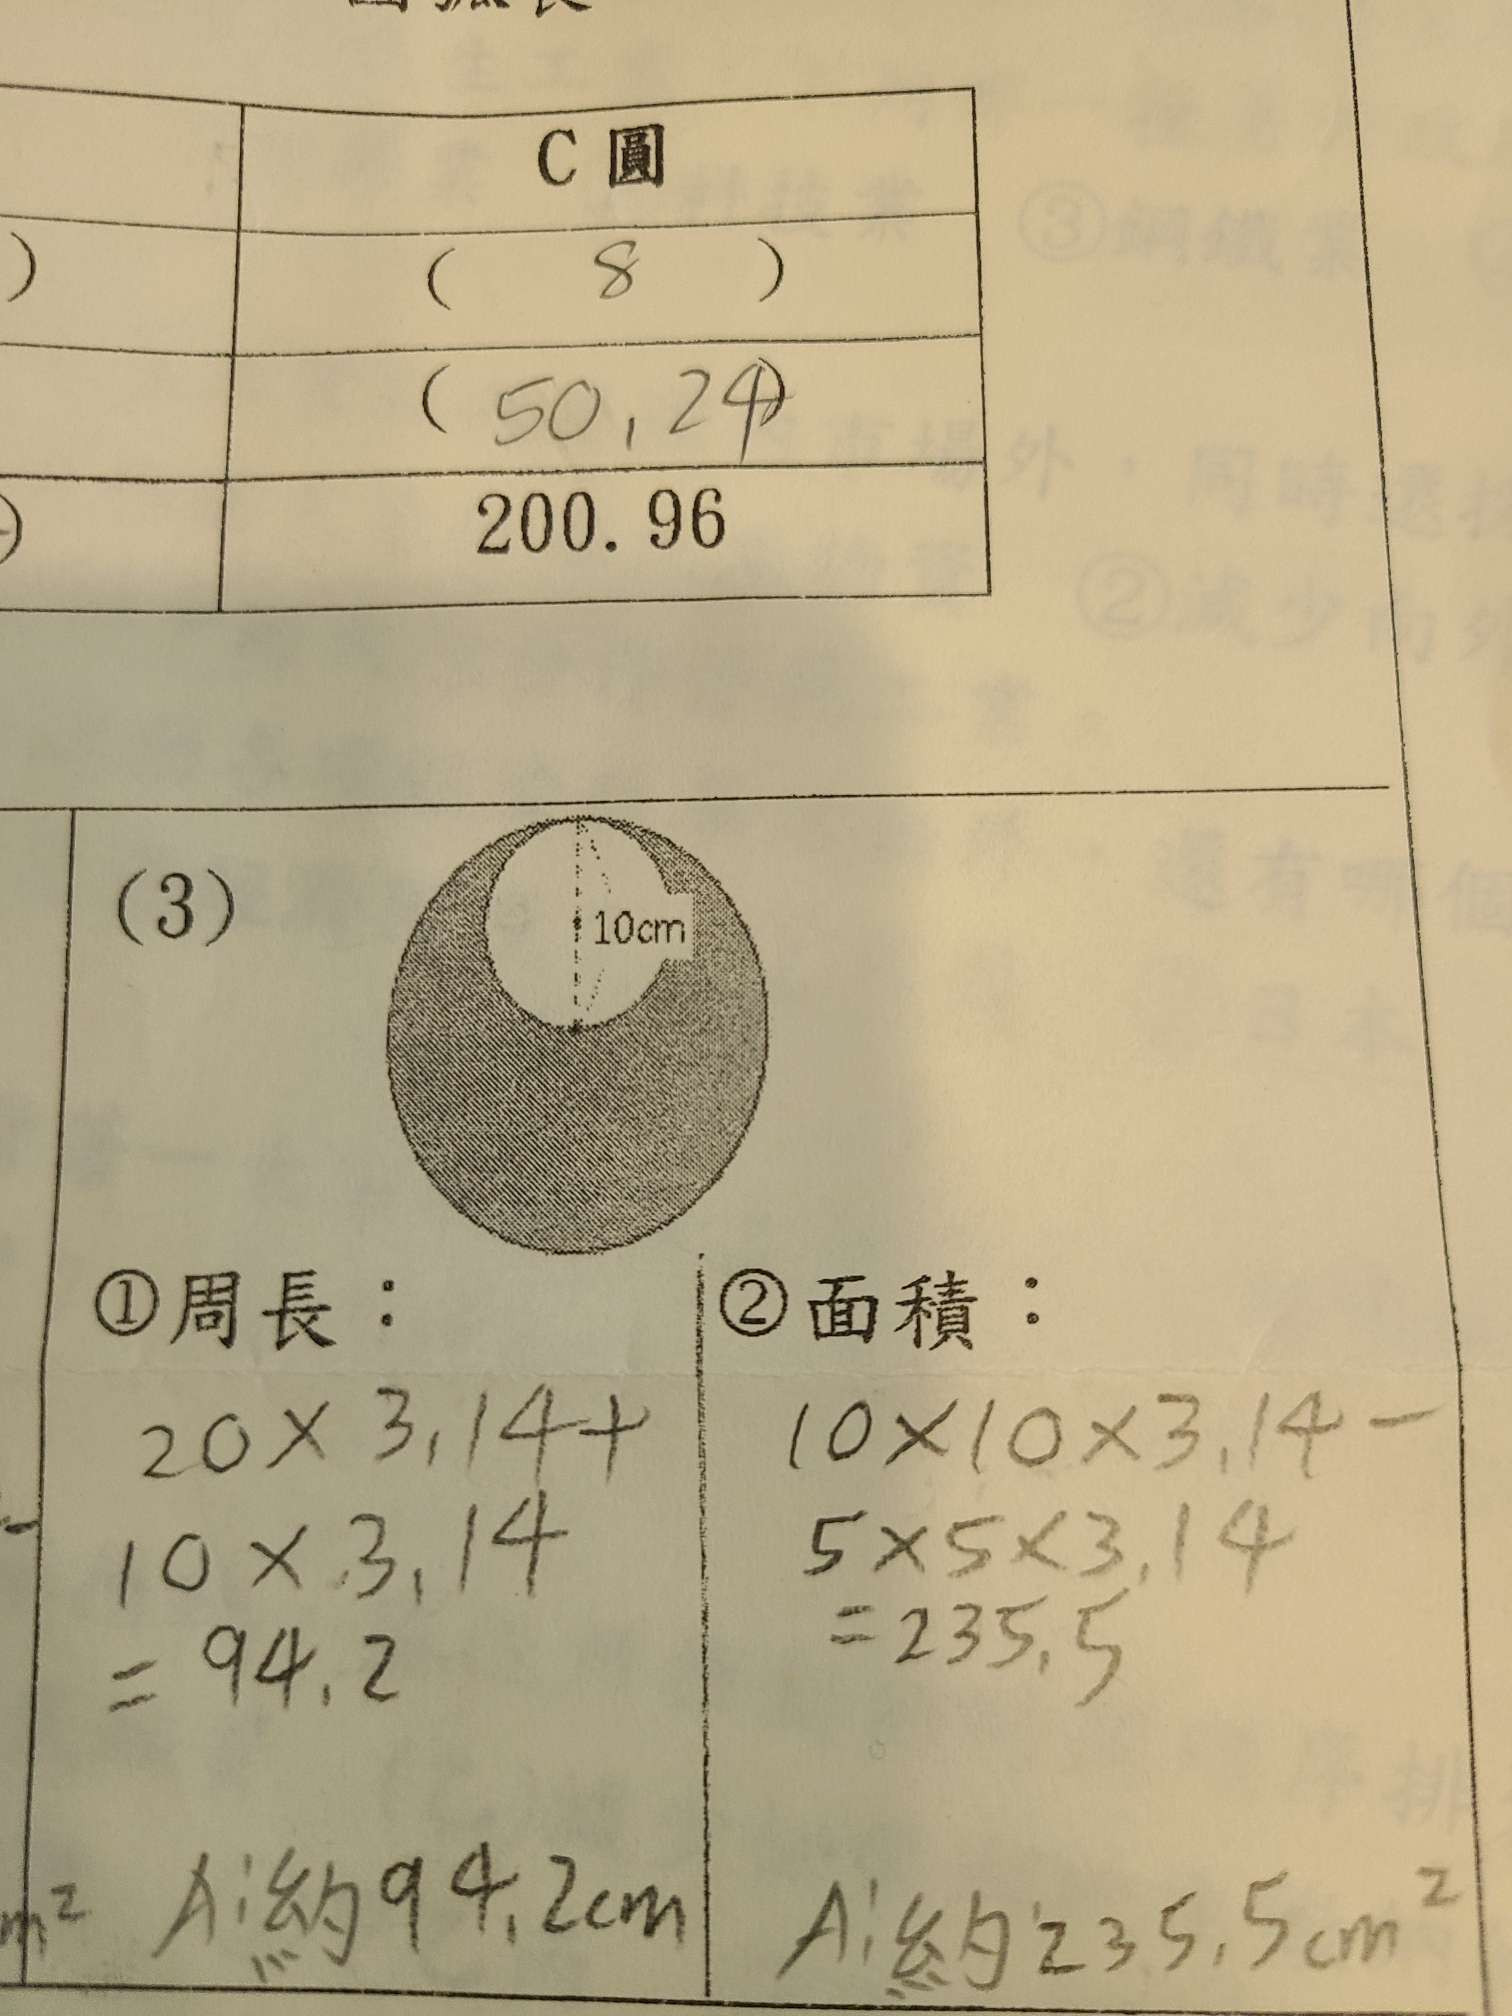 C 圓
)
( 8 )
( 50.24)
)
200.96
(3)
10cm
①周長：
20×3.14+
10×3.14
=94.2
A:約94.2cm
②面積：
10×10×3.14-
5×5×3.14
=235.5
A:約235.5cm²
m²